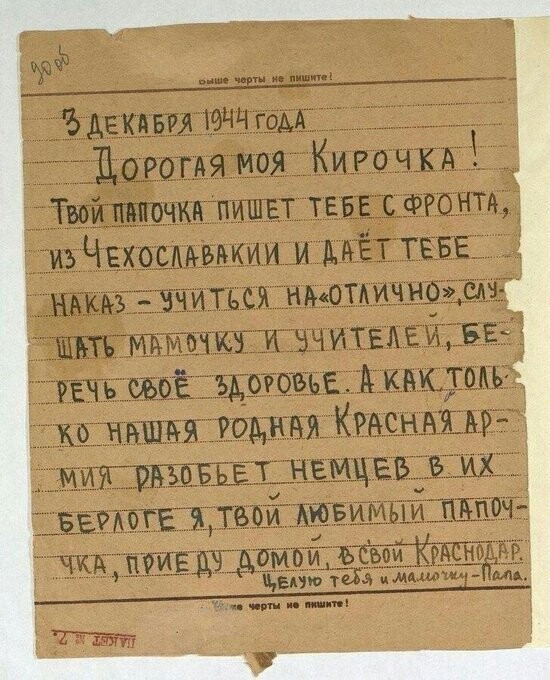 Выше черты не пишите!
3 ДЕКАБРЯ 1944 ГОДА
ДОРОГАЯ МОЯ КИРОЧКА!
ТВОЙ ПАПОЧКА ПИШЕТ ТЕБЕ С ФРОНТА,
ИЗ ЧЕХОСЛАВАКИИ И ДАЁТ ТЕБЕ
НАКАЗ – УЧИТЬСЯ НА «ОТЛИЧНО», СЛУ-
ШАТЬ МАМОЧКУ И УЧИТЕЛЕЙ, БЕ-
РЕЧЬ СВОЁ ЗДОРОВЬЕ. А КАК ТОЛЬ-
КО НАША Я РОДНАЯ КРАСНАЯ АР-
МИЯ РАЗОБЬЕТ НЕМЦЕВ В ИХ
БЕРЛОГЕ Я, ТВОЙ ЛЮБИМЫЙ ПАПОЧ-
ЧКА, ПРИЕДУ ДОМОЙ, В СВОЙ КРАСНОДАР.
ЦЕЛУЮ тебя и мамочку – Папа.
Выше черты не пишите!
ПАКЕТ № 7.